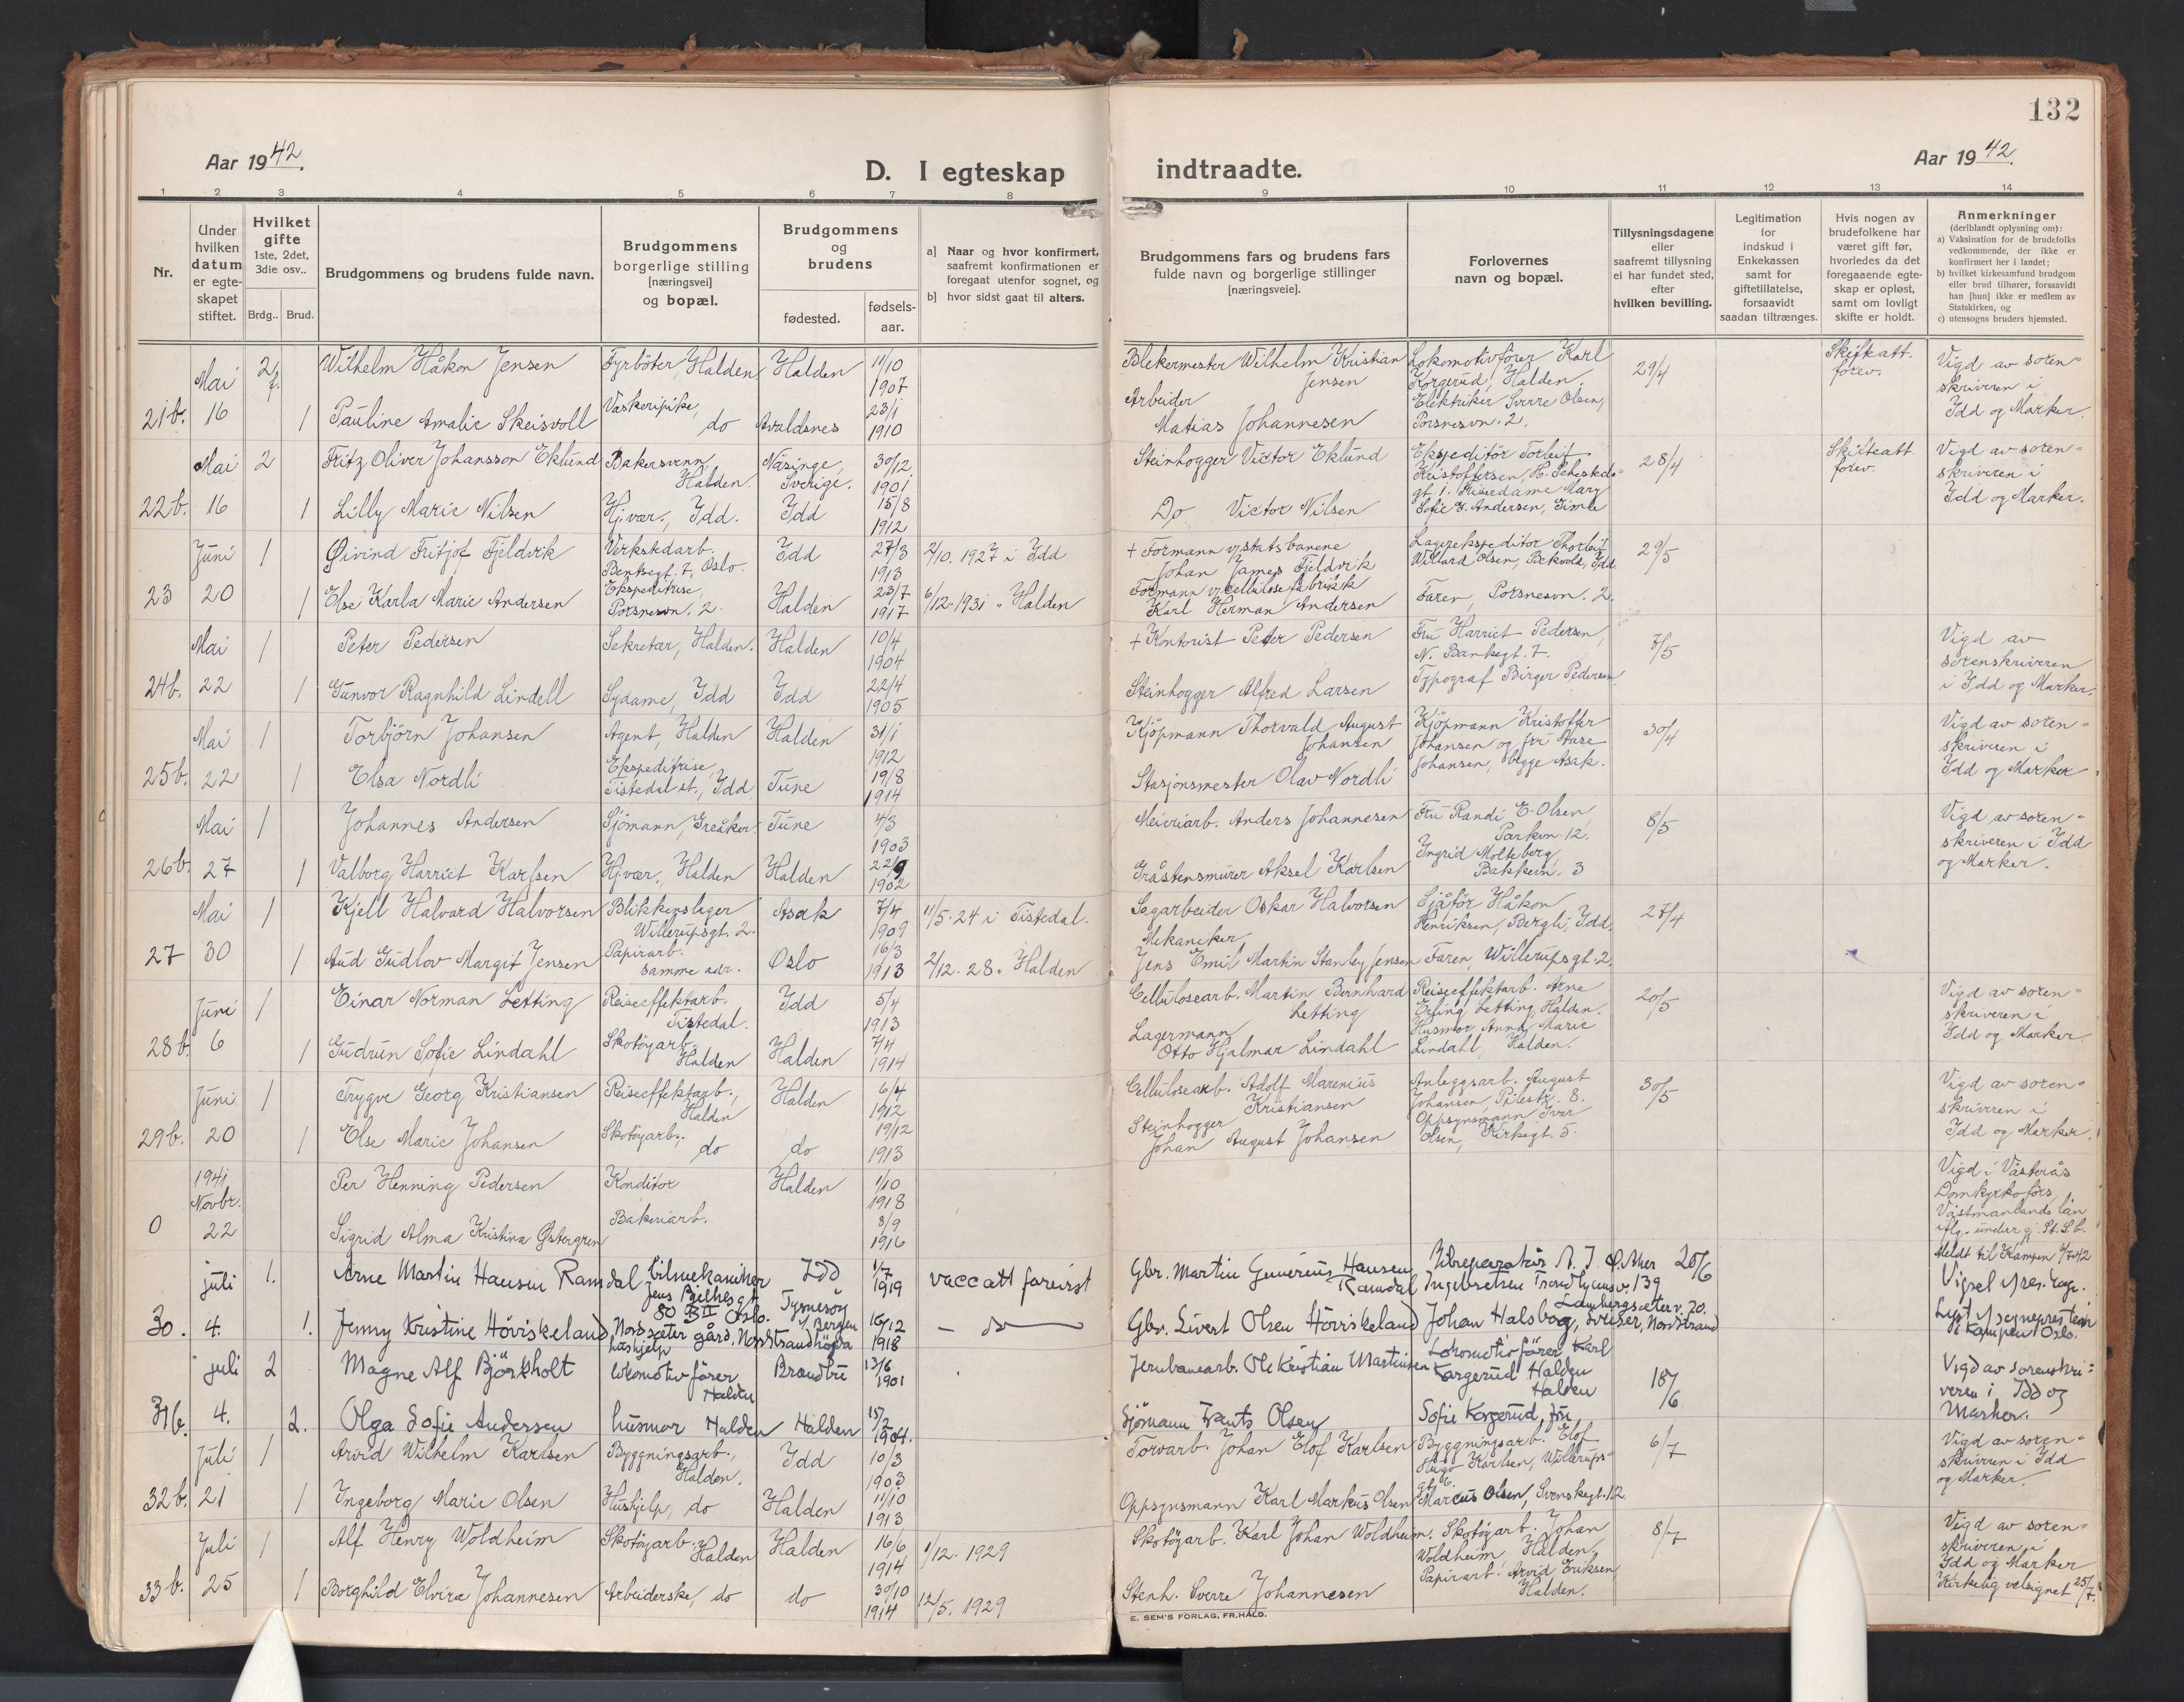 132
Aar 1942.
D. I egteskap indtraadte.
Aar 1942.
1 2 3 4 5 6 7 8 9 10 11 12 13 14
Nr.
Under hvilken datum er egteskapet stiftet.
Hvilket gifte 1ste, 2det, 3die osv..
Brdg.. Brud.
Brudgommens og brudens fulde navn.
Brudgommens borgerlige stilling [næringsvei] og bopæl.
Brudgommens og brudens
fødested.
fødsels-aar.
a] Naar og hvor konfirmert, saafremt konfirmationen er foregaat utenfor sognet, og
b] hvor sidst gaat til alters.
Brudgommens fars og brudens fars fulde navn og borgerlige stillinger [næringsveie].
Forlovernes navn og bopæl.
Tillysningsdagene eller saafremt tillysning ei har fundet sted, efter hvilken bevilling.
Legitimation for indskud i Enkekassen samt for giftetillatelse, forsaavidt saadan tiltrænges.
Hvis nogen av brudefolkene har været gift før, hvorledes da det foregaaende egteskap er opløst, samt om lovligt skifte er holdt.
Anmerkninger (deriblandt oplysning om):
a) Vaksination for de brudefolks vedkommende, der ikke er konfirmert her i landet;
b) hvilket kirkesamfund brudgom eller brud tilhører, forsaavidt han [hun] ikke er medlem av Statskirken, og
c) utensogns bruders hjemsted.
Mai 2 f. Wilhelm Håkon Jensen Fyrbøter, Halden Halden 11/10 1907 Blekermester Wilhelm Kristian Jensen Lokomotivfører Karl Korgerud, Halden. 29/4 Skifteatt. forev. Vigd av sorenskriveren i Idd og Marker.
21b. 16 1 Pauline Amalie Skeisvoll Vaskeripike, do Avaldsnes 23/1 1910 Arbeider Matias Johannesen Elektriker Sverre Olsen, Porsnesvn. 2.
Mai 2 Fritz Oliver Johansson Eklund Bakersvenn, Halden. Näsinge, Sverige. 30/12 1901 Steinhogger Victor Eklund Ekspeditör Torleif Kristoffersen, H. 28/4 Skifteatt. forev. Vigd av sorenskriveren i Idd og Marker.
22b. 16 1 Lilly Marie Nilsen Hj.vær., Idd. Idd 15/8 1912 Do Victor Nilsen gt. 1. Mary Sofie Andersen, Gimle
Juni 1 Øivind Fritjof Fjeldvik Verkstedarb. Bentsegt. 7, Oslo. Idd 27/3 1913 2/10. 1927 i Idd + Formann v/statsbanene Johan James Fjeldvik Lagerekspeditör Thorleif Willard Olsen, Bekvold, Idd 29/5
23 20 1 Else Karla Marie Andersen Ekspeditrise, Porsnesvn. 2. Halden 23/7 1917 6/12. 1931 " Halden Formann v/cellulosefabrikk Karl Herman Andersen Faren, Porsnesvn. 2.
Mai 1 Peter Pedersen Sekretær, Halden. Halden 10/4 1904 + Kontorist Peter Pedersen Fru Harriet Pedersen, N. Bankegt. 7. 7/5 Vigd av sorenskriveren i Idd og Marker.
24b. 22 1 Gunvor Ragnhild Lindell Sydame, Idd Idd 22/4 1905 Steinhogger Alfred Larsen Typograf Birger Pedersen
Mai 1 Torbjörn Johansen Agent, Halden Halden 31/1 1912 Kjöpmann Thorvald August Johansen Kjöpmann Kristoffer Johansen og fru Aase Johansen, begge Asak. 30/4 Vigd av sorenskriveren i Idd og Marker
25b. 22 1 Elsa Nordli Ekspeditrise, Tistedal st., Idd Tune 19/8 1914 Stasjonsmester Olav Nordli
Mai 1 Johannes Andersen Sjömann, Greåker. Tune 4/3 1903 Meieriarb. Anders Johannesen Fru Randi E. Olsen, Parkvn. 12. 8/5 Vigd av sorenskriveren i Idd og Marker.
26b. 27 1 Valborg Harriet Karlsen Hj.vær., Halden Halden 22/9 1902 Gråstensmurer Aksel Karlsen Ingrid Molteberg, Bakkevn. 3
Mai 1 Kjell Halvard Halvorsen Blikkenslager Willerupsgt. 2. Asak 7/4 1909 11/5. 24 i Tistedal. Sagarbeider Oskar Halvorsen Sjåför Håkon Henriksen, Bergli, Idd. 27/4
27 30 1 Aud Gudlov Margit Jensen Papirarb. samme adr. Oslo 16/3 1913 2/12. 28 " Halden Mekaniker Jens Emil Martin Stanley Jensen Faren, Willerupsgt. 2.
Juni 1 Einar Norman Letting Reiseeffektarb. Tistedal. Idd 5/4 1913 Cellulosearb. Martin Bernhard Letting Reiseeffektarb. Arne Erling Letting, Halden. 20/5 Vigd av sorenskriveren i Idd og Marker.
28b. 6 1 Gudrun Sofie Lindahl Skotöyarb. Halden Halden 7/4 1914 Lagermann Otto Hjalmar Lindahl Husmor Anna Marie Lindahl, Halden.
Juni 1 Trygve Georg Kristiansen Reiseeffektarb., Halden Halden 6/4 1912 Cellulosearb. Adolf Marenius Kristiansen Anleggsarb. August Johansen, Pilestr. 8. 30/5 Vigd av sorenskriveren i Idd og Marker.
29b. 20 1 Else Marie Johansen Skotöyarb., do do 19/12 1913 Steinhogger Johan August Johansen Oppsynsmann Iver Olsen, Kirkegt. 5.
1941 Novbr. Per Henning Pedersen Konditor Halden 1/10 1918 Vigd i Västerås Domkyrkoförs, Västmanlands län
0 22 Sigrid Alma Kristina Østergren Bakeriarb. 3/9 1916
juli 1. Arne Martin Hansen Ramdal bilmekaniker Jens Bjelkesgt 80 B II Oslo. Idd 1/7 1919 vacc att forevist Gbr. Martin Gunerius Hansen Ramdal Ingebretsen Trondhjemsv. 139 20/6 Meldt til Kampen 6/7 42
30. 4. 1. Jenny Kristine Höviskeland, Nordseter gård, Nordstrandhögda hushjelp Tysnesöy v/ Bergen 16/12 1918 — do — Gbr. Sivert Olsen Höviskeland Johan Halsbog, Sveiser, Nordstrand Lambergseterv. 20.
juli 2 Magne Alf Björkholt lokomotivförer Halden Brandbu 13/6 1901 Jernbanearb. Ole Kristian Martinsen Lokomotivförer Karl Korgerud Halden Halden 18/6 Vigd av sorenskriveren i Idd og Marker.
31b. 4. 2. Olga Sofie Andersen husmor Halden Halden 15/2 1904. Sjömann Frants Olsen Sofie Korgerud, fru
Juli 1 Arvid Wilhelm Karlsen Byggningsarb., Halden. Idd 10/3 1903 Torvarb. Johan Elof Karlsen Byggningsarb. Elof Hugo Karlsen, Willerupsgt. 6. 6/7 Vigd av sorenskriveren i Idd og Marker.
32b. 21 1 Ingeborg Marie Olsen Hushjelp, do Halden 11/10 1913 Oppsynsmann Karl Markus Olsen Marcus Olsen, Svenskegt. 12
Juli 1 Alf Henry Woldheim Skotöyarb., Halden Halden 16/6 1914 1/12. 1929 Skotöyarb. Karl Johan Woldheim. Skotöyarb. Johan Woldheim, Halden. 8/7 Vigd av sorenskriveren i Idd og Marker Kirkelig velsignet 25/7.
33b. 25 1 Borghild Elvira Johannesen Arbeiderske, do do 30/10 1914 12/5. 1929 Stenh. Sverre Johannesen Papirarb. Arvid Eriksen, Halden.
E. SEM'S FORLAG, FR.HALD.